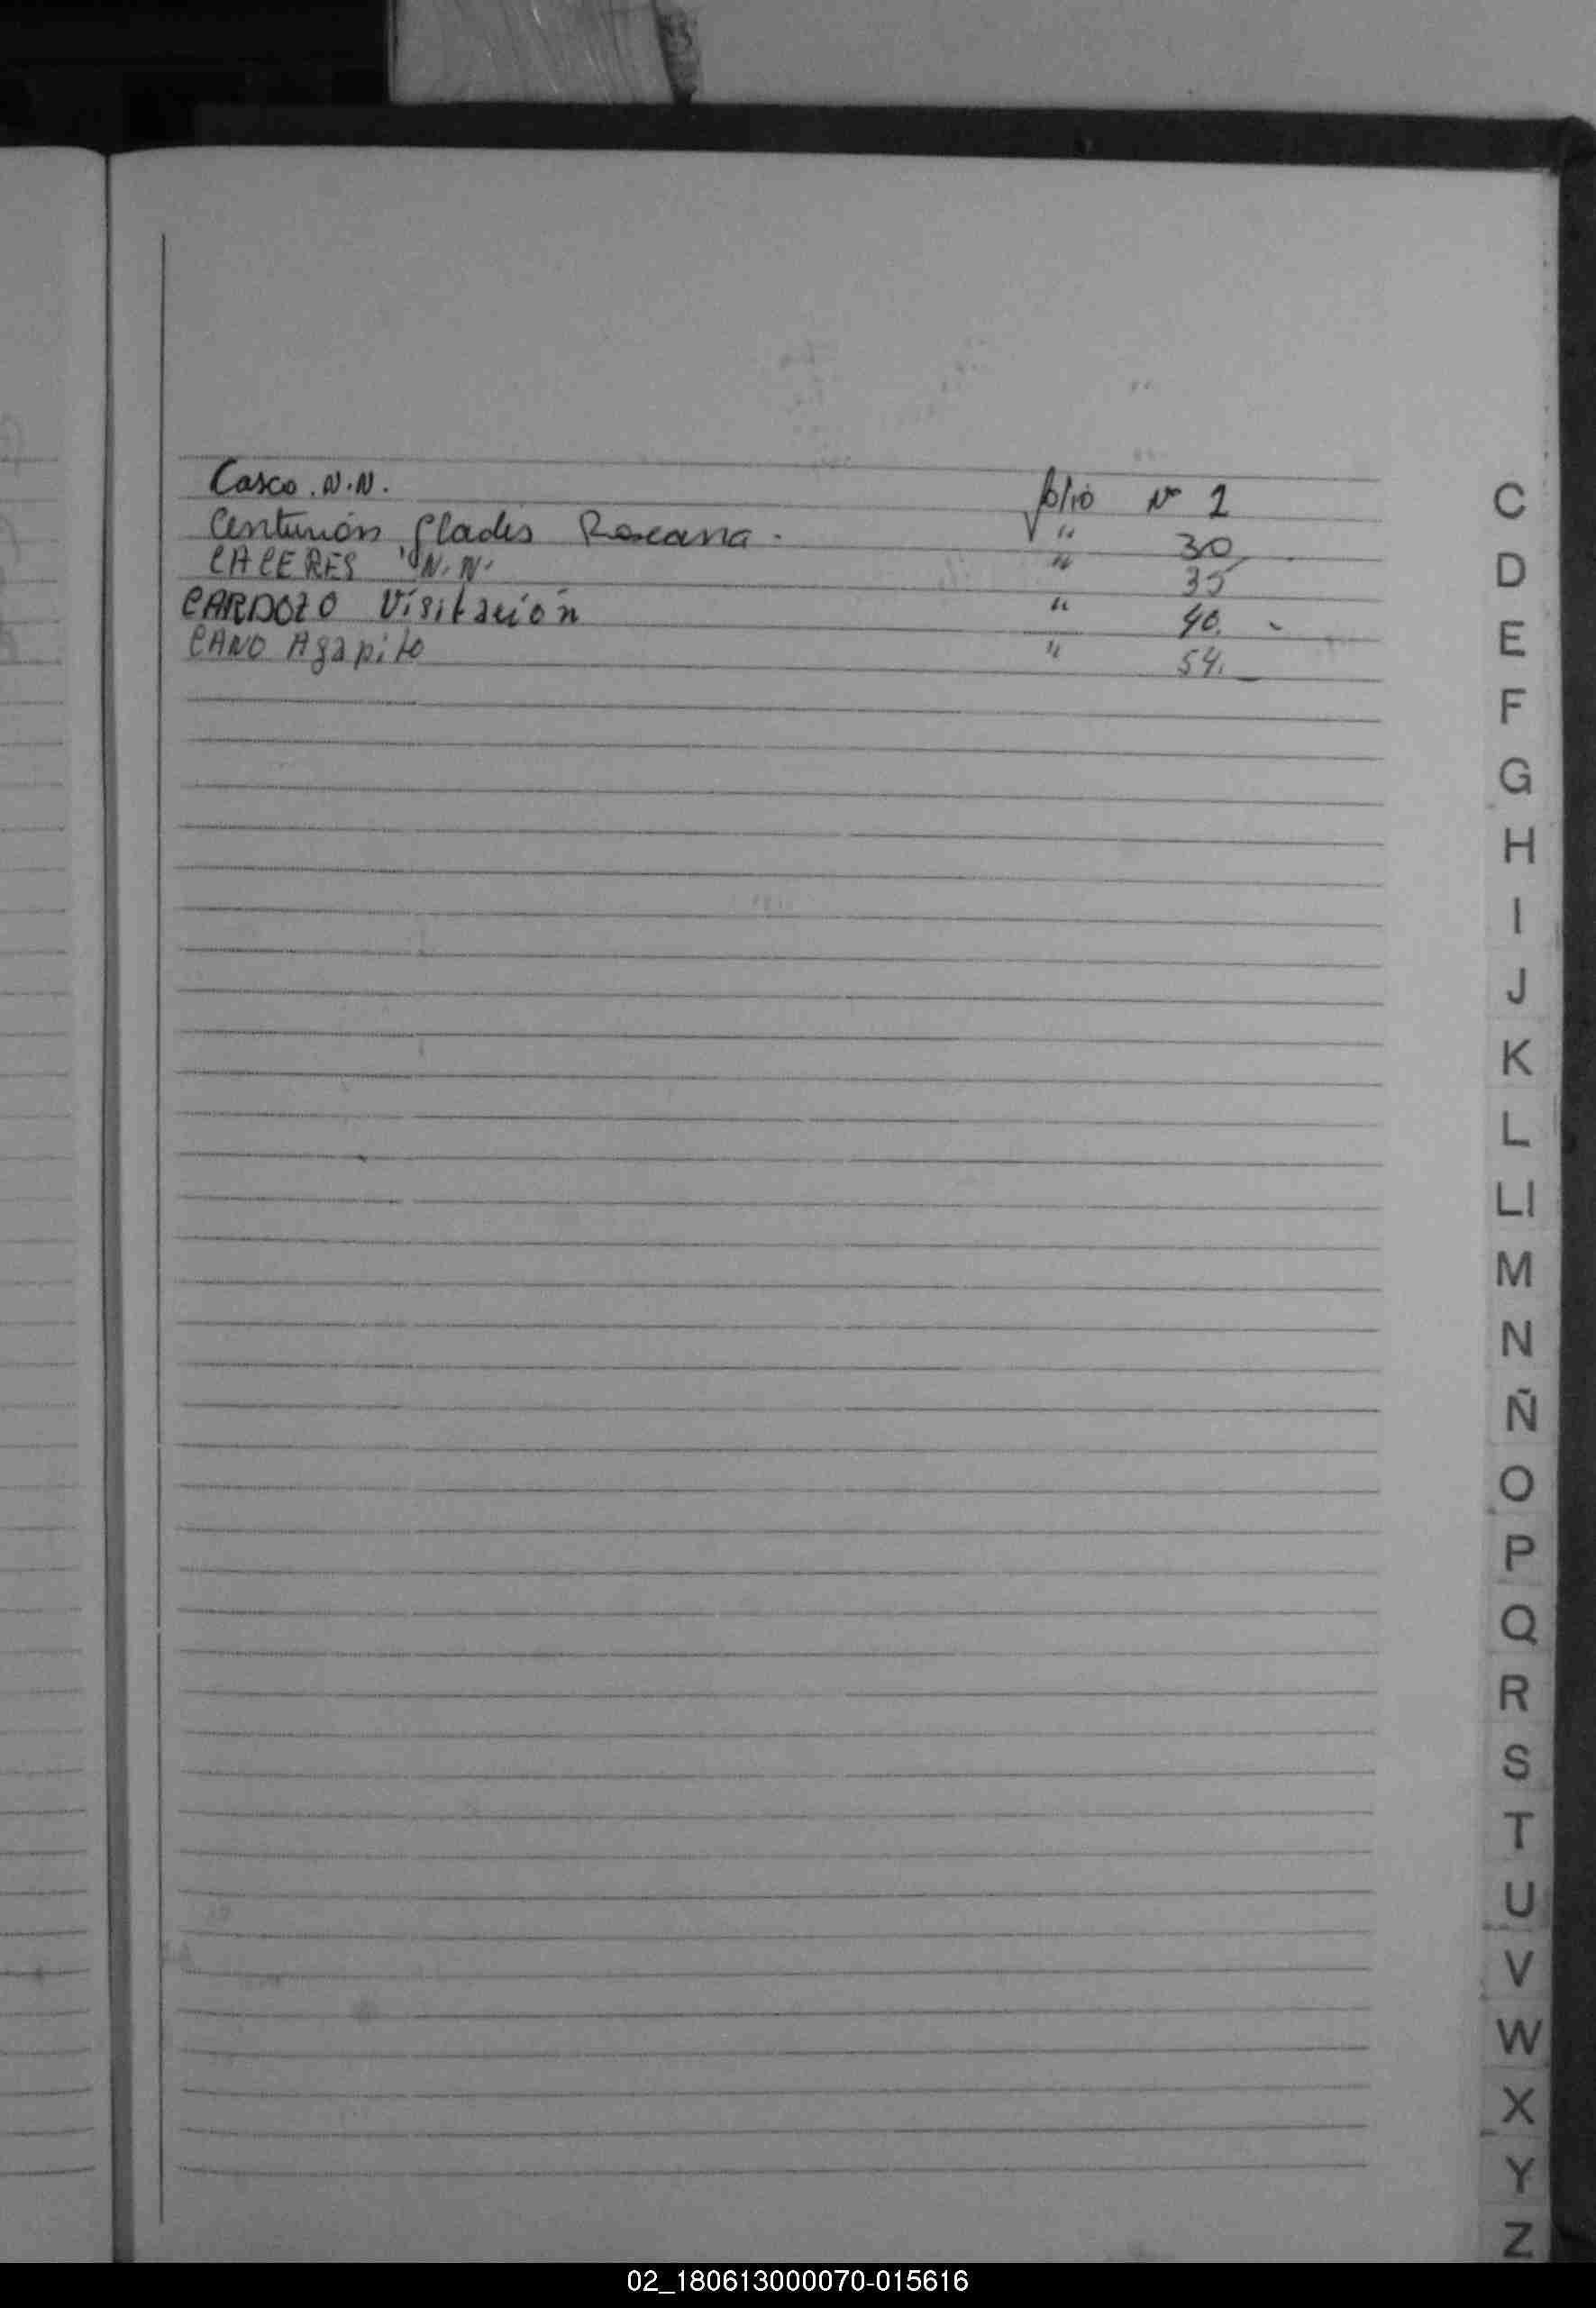 Casco. N.N. folio Nº 1
Centurión Gladis Roxana. " 30
CACERES N.N. " 35
CARDOZO Visitación " 40.
CANO Agapito " 54.
C
D
E
F
G
H
I
J
K
L
Ll
M
N
Ñ
O
P
Q
R
S
T
U
V
W
X
Y
Z
02_180613000070-015616